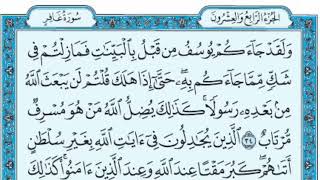 الجزء الرابع والعشرون
سورة غافر
وَلَقَدْ جَآءَكُمْ يُوسُفُ مِن قَبْلُ بِٱلْبَيِّنَٰتِ فَمَا زِلْتُمْ فِى
شَكٍّ مِّمَّا جَآءَكُم بِهِۦ ۖ حَتَّىٰٓ إِذَا هَلَكَ قُلْتُمْ لَن يَبْعَثَ ٱللَّهُ
مِنۢ بَعْدِهِۦ رَسُولًا ۚ كَذَٰلِكَ يُضِلُّ ٱللَّهُ مَنْ هُوَ مُسْرِفٌ
مُّرْتَابٌ ٣٤ ٱلَّذِينَ يُجَٰدِلُونَ فِىٓ ءَايَٰتِ ٱللَّهِ بِغَيْرِ سُلْطَٰنٍ
أَتَىٰهُمْ ۖ كَبُرَ مَقْتًا عِندَ ٱللَّهِ وَعِندَ ٱلَّذِينَ ءَامَنُوا۟ ۚ كَذَٰلِكَ